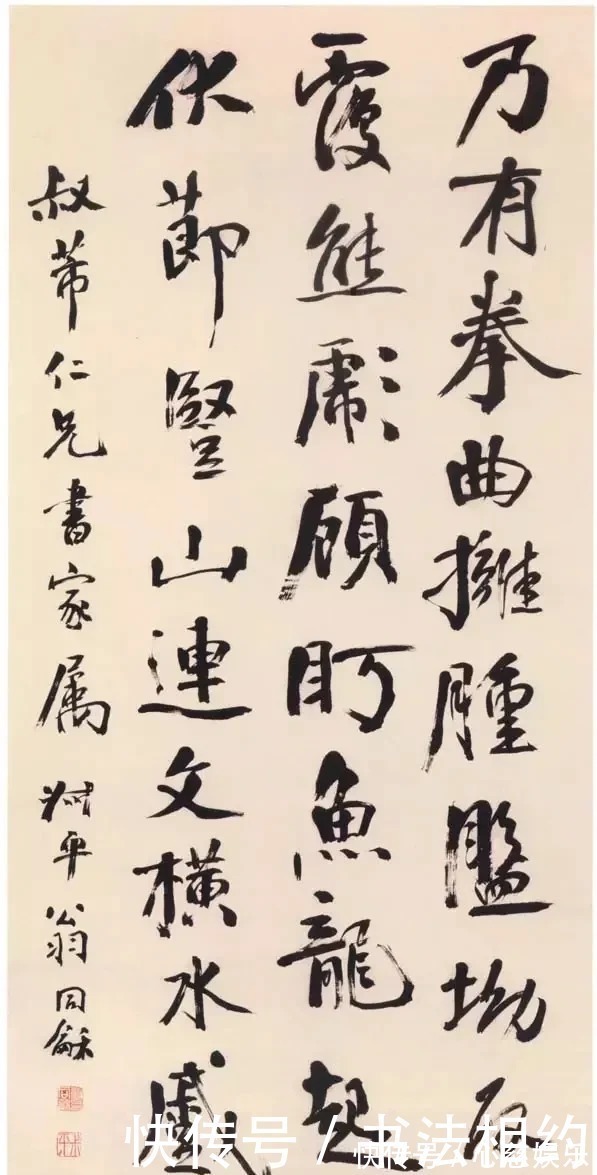 乃有拳曲擁腫盤坳反
覆熊彪顧眄魚龍起
伏節豎山連文橫水蹙
叔芾仁兄書家属 叔平翁同龢
快传号 / 书法相约